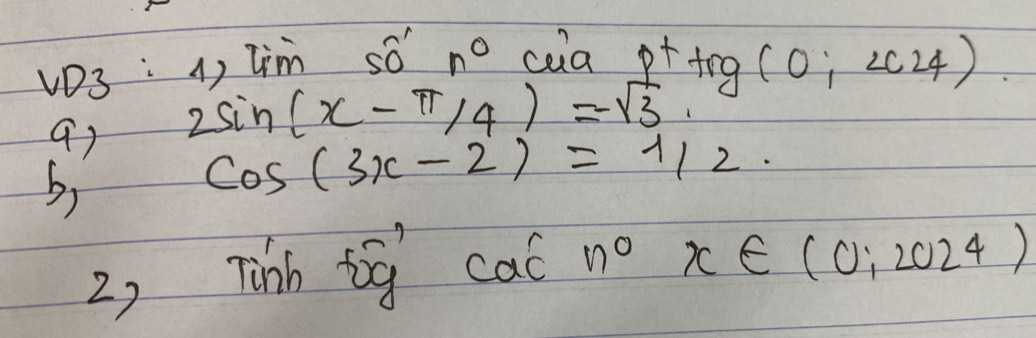 VD3 : 1, Tìm số nº của pt trg (0; 2024).
a, 2sin(x - π/4) = √3.
b, Cos (3x - 2) = 1/2.
2, Tính tổg các nº x ∈ (0; 2024)